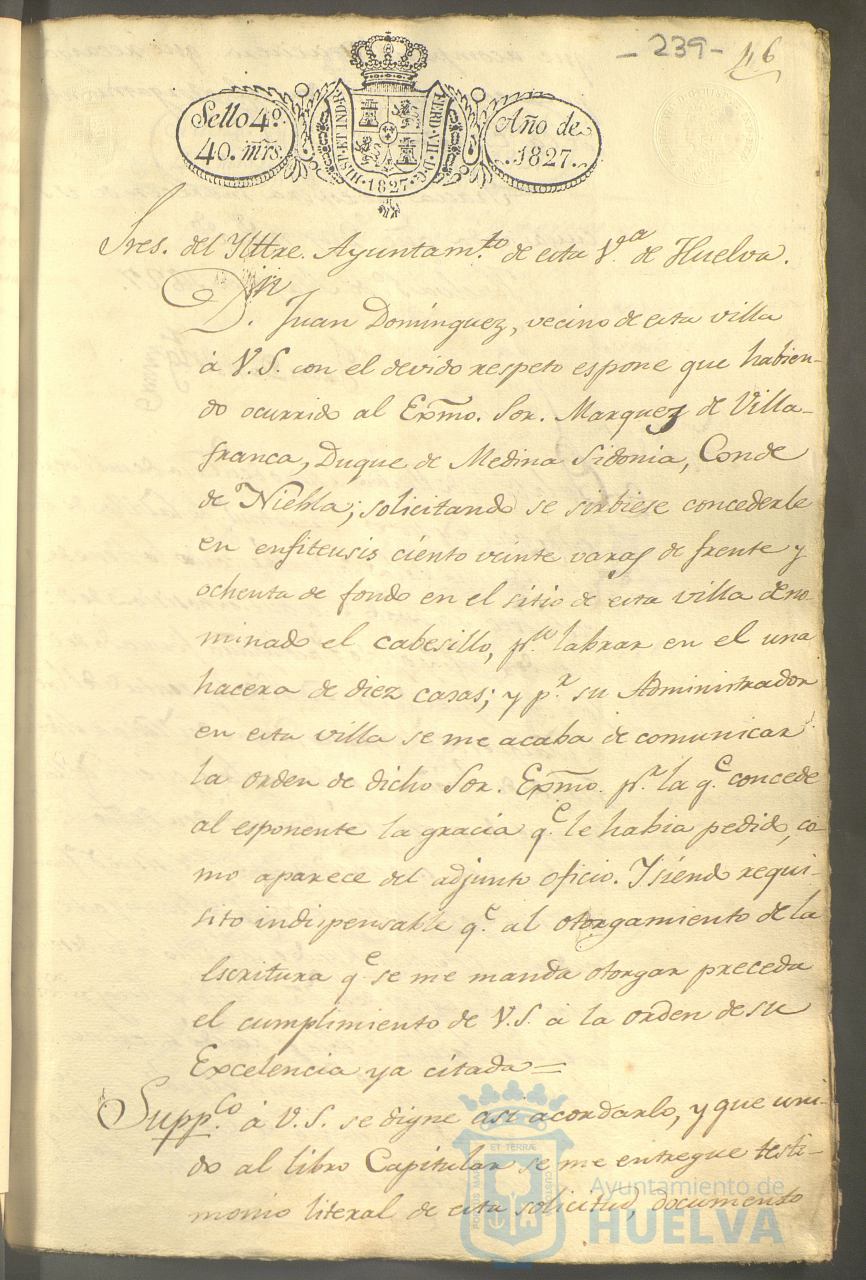 - 239 -
46
Sello 4º.
40. mrs.
HISP. ET IND. R.
FERD. VII. D. G.
· 1827 ·
Año de
1827.
Sres. del Ylttre. Ayuntam.to de esta V.a de Huelva.
D.n Juan Domínguez, vecino de esta villa
á V.S. con el devido respeto espone que habien-
do ocurrido al Exmo. Sor. Marquez de Villa-
franca, Duque de Medina Sidonia, Conde
de Niebla; solicitando se sirbiese concederle
en enfiteusis ciento veinte varas de frente y
ochenta de fondo en el sitio de esta villa deno
minado el cabesillo, p.a labrar en el una
hacera de diez casas; y p.r su Administrador
en esta villa se me acaba de comunicar
la orden de dicho Sor. Exmo. p.r la q.e concede
al esponente la gracia q.e le habia pedido, co-
mo aparece del adjunto oficio. Y siendo requi-
sito indispensable q.e al otorgamiento de la
Escritura q.e se me manda otorgar preceda
el cumplimiento de V.S. á la orden de su
Excelencia ya citada =
Supp.co á V.S. se digne asi acordarlo, y que uni-
do al libro Capitular se me entregue testi-
monio literal de esta solicitud, documento
ET TERRÆ
PORTUS MARIS
CUSTODIA
Ayuntamiento de
HUELVA